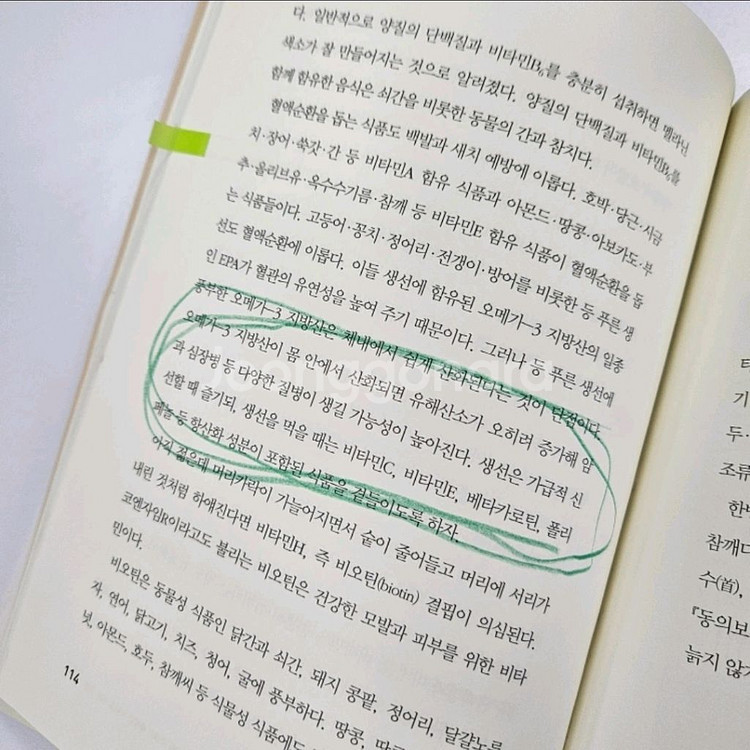 다. 일반적으로 양질의 단백질과 비타민B₆를 충분히 섭취하면 멜라닌
색소가 잘 만들어지는 것으로 알려졌다. 양질의 단백질과 비타민B₆를
함께 함유한 음식은 쇠간을 비롯한 동물의 간과 참치다.
혈액순환을 돕는 식품도 백발과 새치 예방에 이롭다. 호박·당근·시금
치·장어·쑥갓·간 등 비타민A 함유 식품과 아몬드·땅콩·아보카도·부
추·올리브유·옥수수기름·참깨 등 비타민E 함유 식품이 혈액순환을 돕
는 식품들이다. 고등어·꽁치·정어리·전갱이·방어를 비롯한 등 푸른 생
선도 혈액순환에 이롭다. 이들 생선에 함유된 오메가-3 지방산의 일종
인 EPA가 혈관의 유연성을 높여 주기 때문이다. 그러나 등 푸른 생선에
풍부한 오메가-3 지방산은 체내에서 쉽게 산화된다는 것이 단점이다.
오메가-3 지방산이 몸 안에서 산화되면 유해산소가 오히려 증가해 암
과 심장병 등 다양한 질병이 생길 가능성이 높아진다. 생선은 가급적 신
선할 때 즐기되, 생선을 먹을 때는 비타민C, 비타민E, 베타카로틴, 폴리
페놀 등 항산화 성분이 포함된 식품을 곁들이도록 하자.
아직 젊은데 머리카락이 가늘어지면서 숱이 줄어들고 머리에 서리가
내린 것처럼 하얘진다면 비타민H, 즉 비오틴(biotin) 결핍이 의심된다.
코엔자임R이라고도 불리는 비오틴은 건강한 모발과 피부를 위한 비타
민이다.
비오틴은 동물성 식품인 닭간과 쇠간, 돼지 콩팥, 정어리, 달걀노른
자, 연어, 닭고기, 치즈, 청어, 굴에 풍부하다. 땅콩,
넛, 아몬드, 호두, 참깨씨 등 식물성 식품에도
114
joonggonara
타
기
두
조류
한
참깨다
수(首),
『동의보
늙지 않